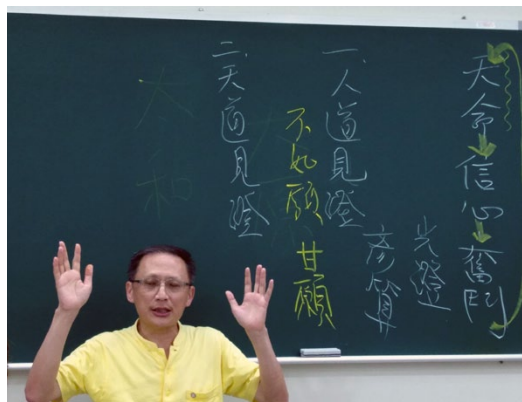 天命信心奮鬥
光證
彥算
一、人道見證
不如願 甘願
二、天道見證
太和